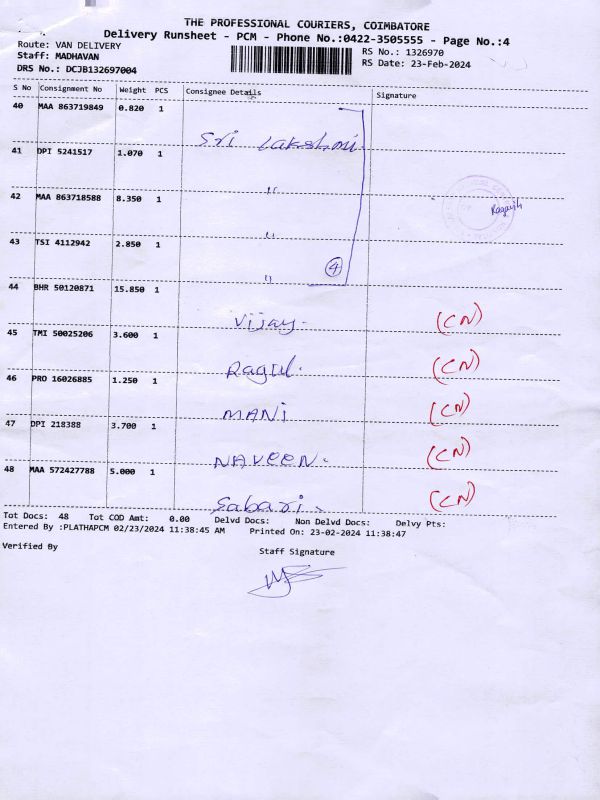 THE PROFESSIONAL COURIERS, COIMBATORE
Delivery Runsheet - PCM - Phone No.:0422-3505555 - Page No.:4
Route: VAN DELIVERY
RS No.: 1326970
Staff: MADHAVAN
RS Date: 23-Feb-2024
DRS No.: DCJB132697004
S No Consignment No Weight PCS Consignee Details Signature
40 MAA 863719849 0.820 1 Sri Lakshmi
41 DPI 5241517 1.070 1 "
42 MAA 863718588 8.350 1 " Ragavith
43 TSI 4112942 2.850 1 " 4
44 BHR 50120871 15.850 1 Vijay. (CN)
45 TMI 50025206 3.600 1 Ragul. (CN)
46 PRO 16026885 1.250 1 MANi (CN)
47 DPI 218388 3.700 1 NAVEEN. (CN)
48 MAA 572427788 5.000 1 Sabari. (CN)
Tot Docs: 48 Tot COD Amt: 0.00 Delvd Docs: Non Delvd Docs: Delvy Pts:
Entered By :PLATHAPCM 02/23/2024 11:38:45 AM Printed On: 23-02-2024 11:38:47
Verified By
Staff Signature